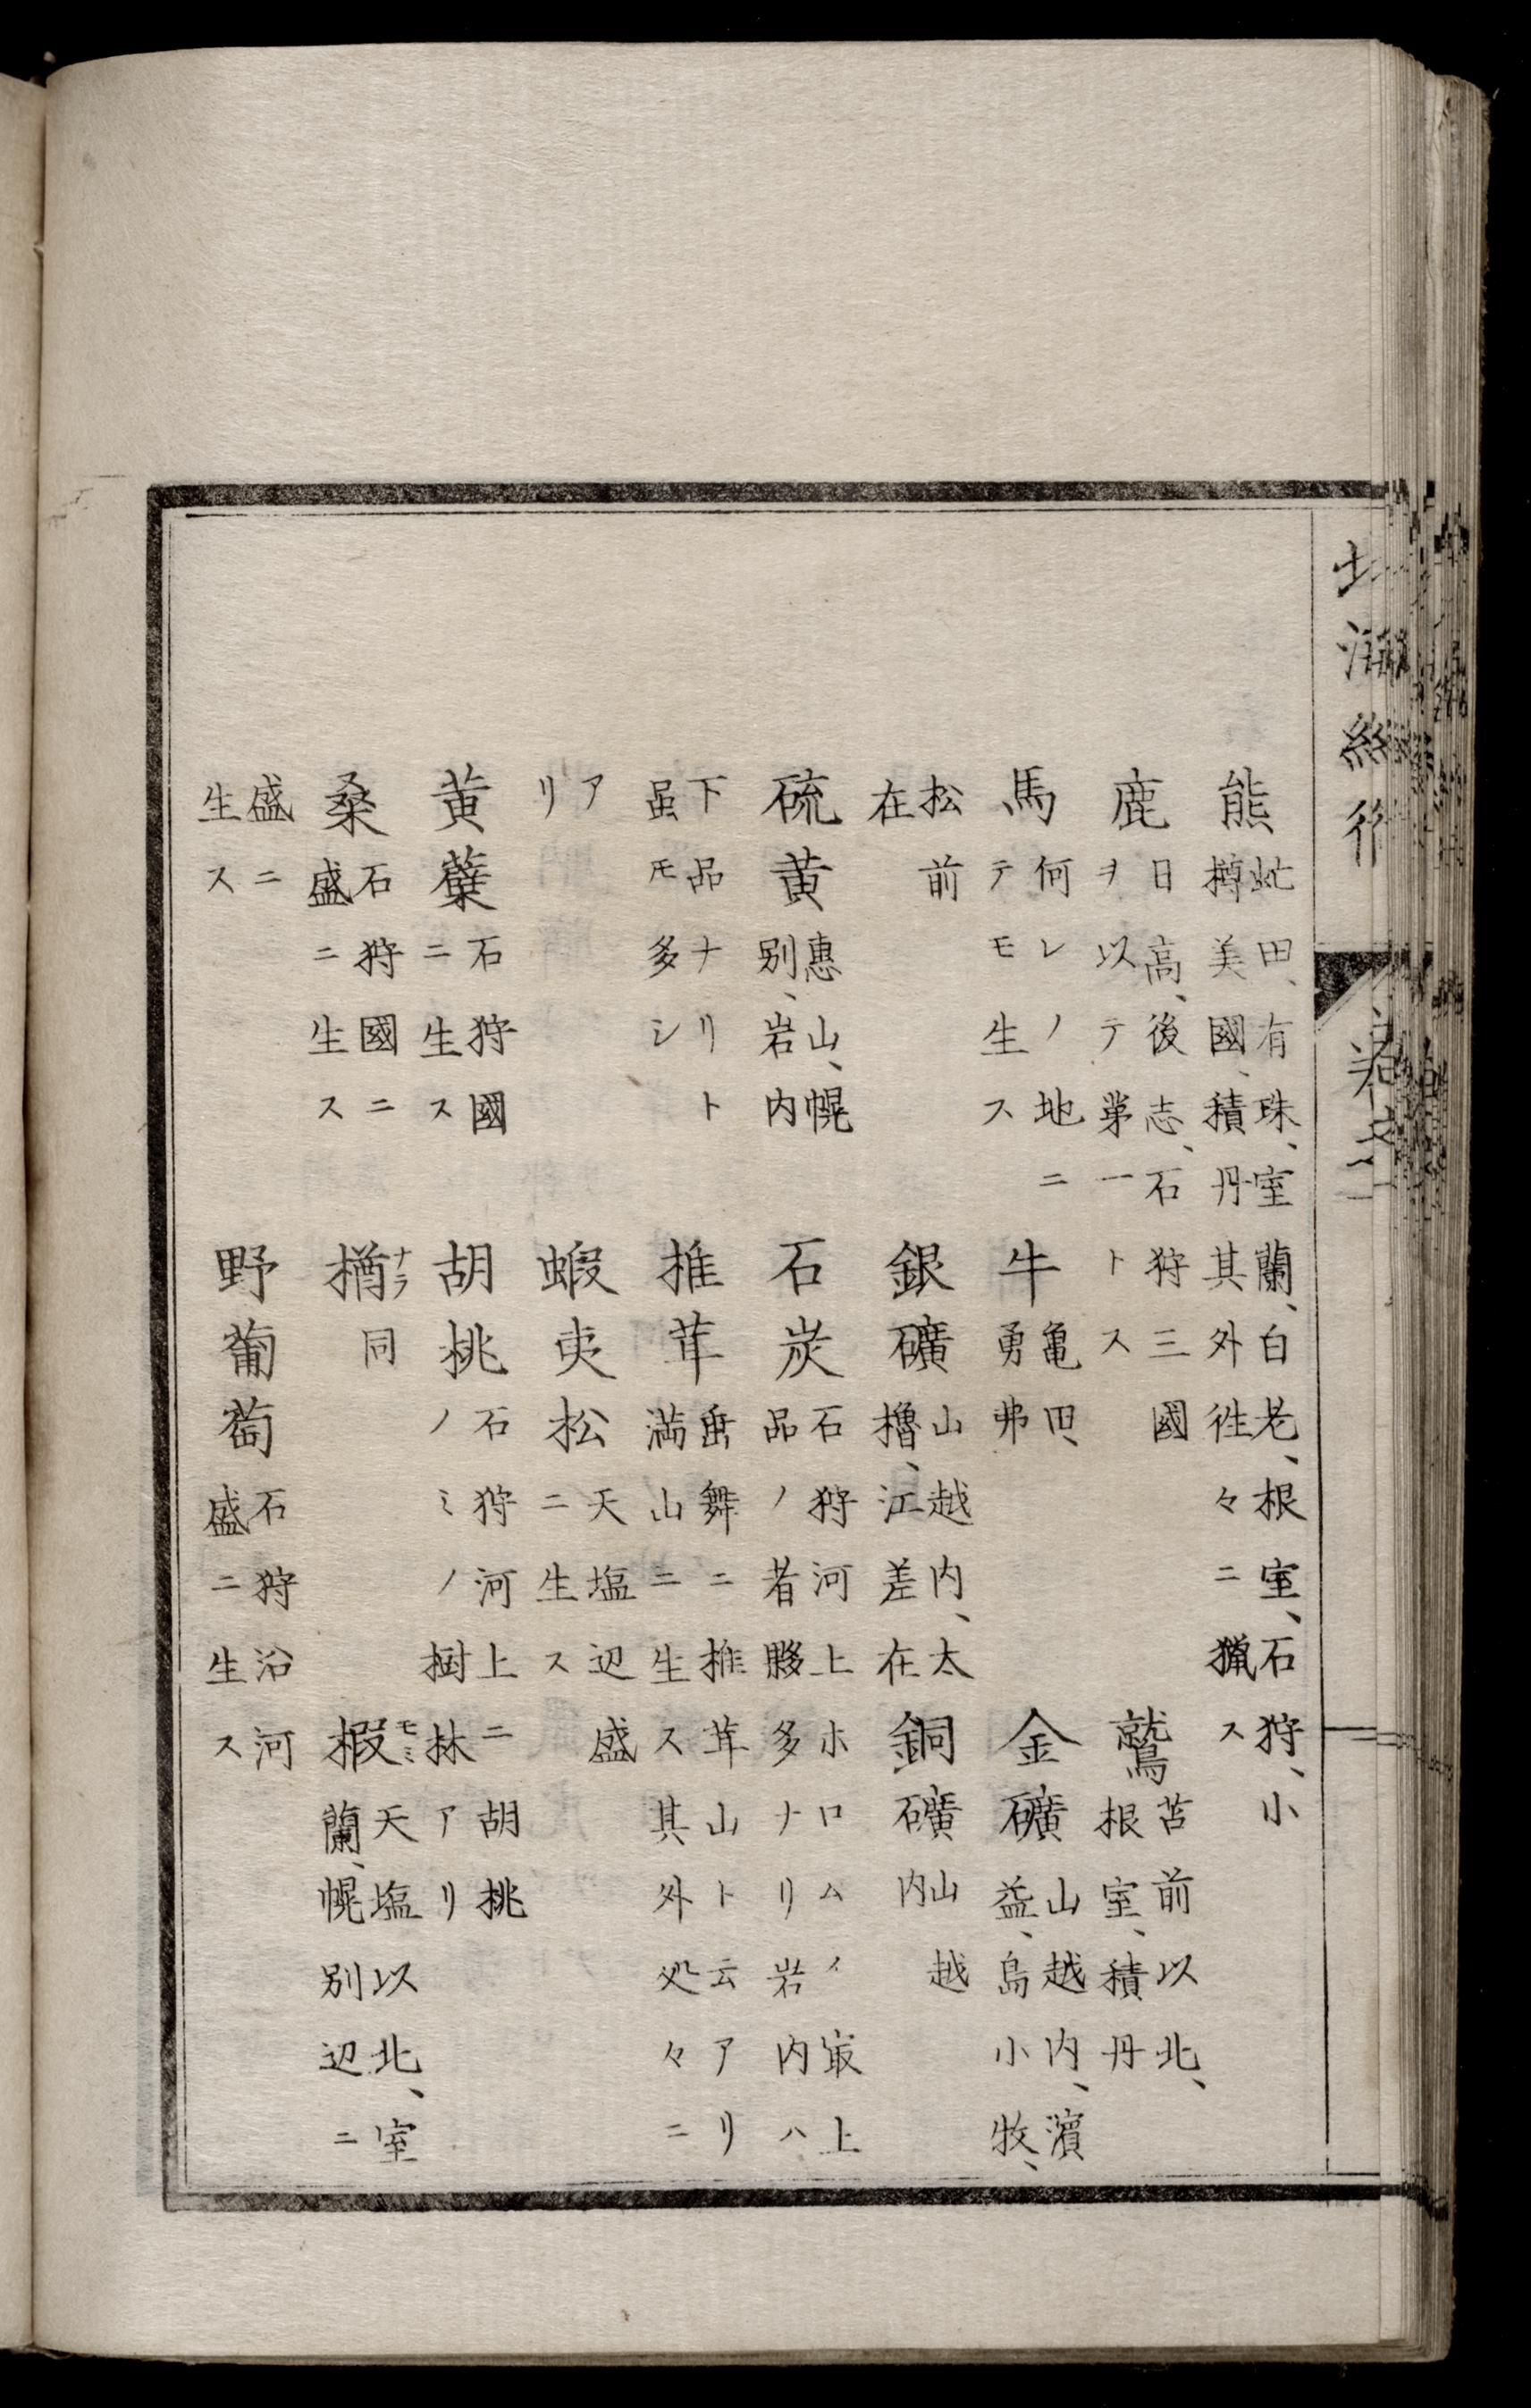 北海紀行 巻之二
熊 虻田、有珠、室蘭、白老、根室、石狩、小樽美國、積丹其外徃々ニ猟ス
鹿 日高、後志、石狩三國ヲ以テ第一トス 鷲 苫前以北、根室、積丹
馬 何レノ地ニテモ生ス 牛 亀田、勇弗 金礦 山越内、濱益、島小牧、
松前在 銀礦 山越内、太櫓、江差在 銅礦 山越内
硫黄 惠山、幌別、岩内 石炭 石狩河上ホロムイ㝡上品ノ者夥多ナリ岩内ハ
下品ナリト虽𪜈多シ 推茸 垂舞ニ推茸山ト云アリ満山ニ生ス其外処々ニ
アリ 蝦夷松 天塩辺盛ニ生ス
黄蘗 石狩國ニ生ス 胡桃 石狩河上ニ胡桃ノミノ樹林アリ
桑 石狩國ニ盛ニ生ス 楢ナラ 同 椵モミ 天塩以北、室蘭、幌別辺ニ
盛ニ生ス 野葡萄 石狩沿河盛ニ生ス